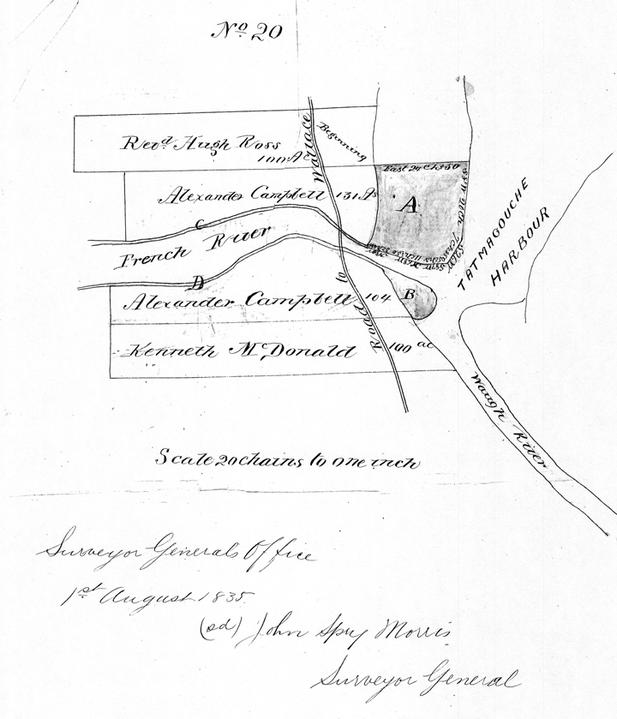 No. 20
Revd. Hugh Ross
100 Ac
Wallace
Beginning
East 20 Ch. 50
Alexander Campbell 131 As
A
C
French River
D
B
Alexander Campbell 104
Road to
Kenneth McDonald 100 ac
TATMAGOUCHE
HARBOUR
Waugh River
Scale 20 chains to one inch
Surveyor Generals Office
1st August 1835
(sd) John Spry Morris
Surveyor General